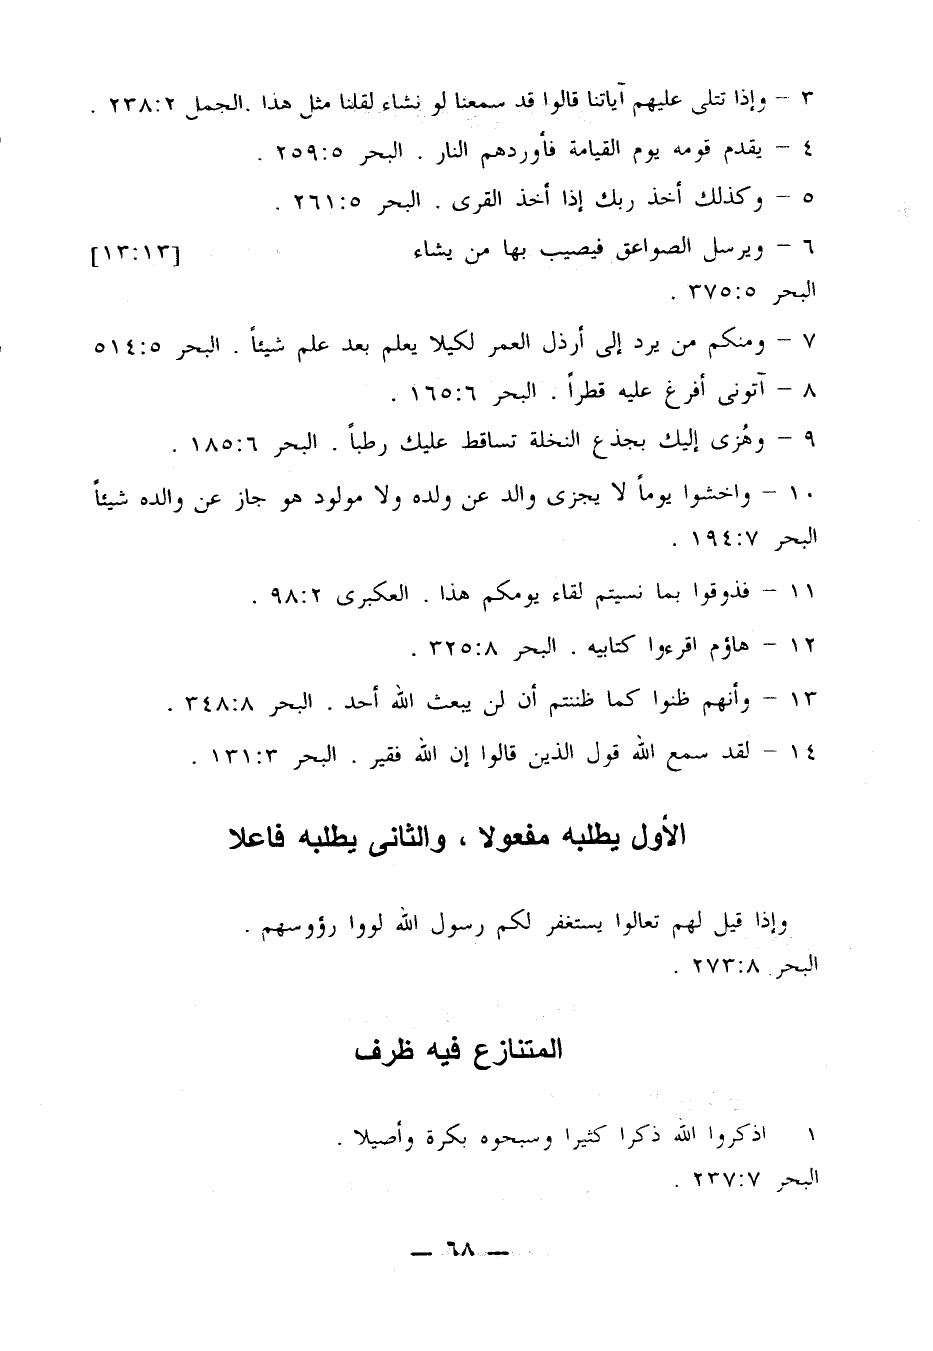 ٣ – وإذا تتلى عليهم آياتنا قالوا قد سمعنا لو نشاء لقلنا مثل هذا .الجمل ٢٣٨:٢ .
٤ – يقدم قومه يوم القيامة فأوردهم النار . البحر ٢٥٩:٥ .
٥ – وكذلك أخذ ربك إذا أخذ القرى . البحر ٢٦١:٥ .
٦ – ويرسل الصواعق فيصيب بها من يشاء [١٣:١٣]
البحر ٣٧٥:٥ .
٧ – ومنكم من يرد إلى أرذل العمر لكيلا يعلم بعد علم شيئاً . البحر ٥١٤:٥
٨ – آتونى أفرغ عليه قطراً . البحر ١٦٥:٦ .
٩ – وهُزى إليك بجذع النخلة تساقط عليك رطباً . البحر ١٨٥:٦ .
١٠ – واخشوا يوماً لا يجزى والد عن ولده ولا مولود هو جاز عن والده شيئاً
البحر ١٩٤:٧ .
١١ – فذوقوا بما نسيتم لقاء يومكم هذا . العكبرى ٩٨:٢ .
١٢ – هاؤم اقرءوا كتابيه . البحر ٣٢٥:٨ .
١٣ – وأنهم ظنوا كما ظننتم أن لن يبعث الله أحد . البحر ٣٤٨:٨ .
١٤ – لقد سمع الله قول الذين قالوا إن الله فقير . البحر ١٣١:٣ .
الأول يطلبه مفعولا ، والثانى يطلبه فاعلا
وإذا قيل لهم تعالوا يستغفر لكم رسول الله لووا رؤوسهم .
البحر ٢٧٣:٨ .
المتنازع فيه ظرف
١ اذكروا الله ذكرا كثيرا وسبحوه بكرة وأصيلا .
البحر ٢٣٧:٧ .
— ٦٨ —